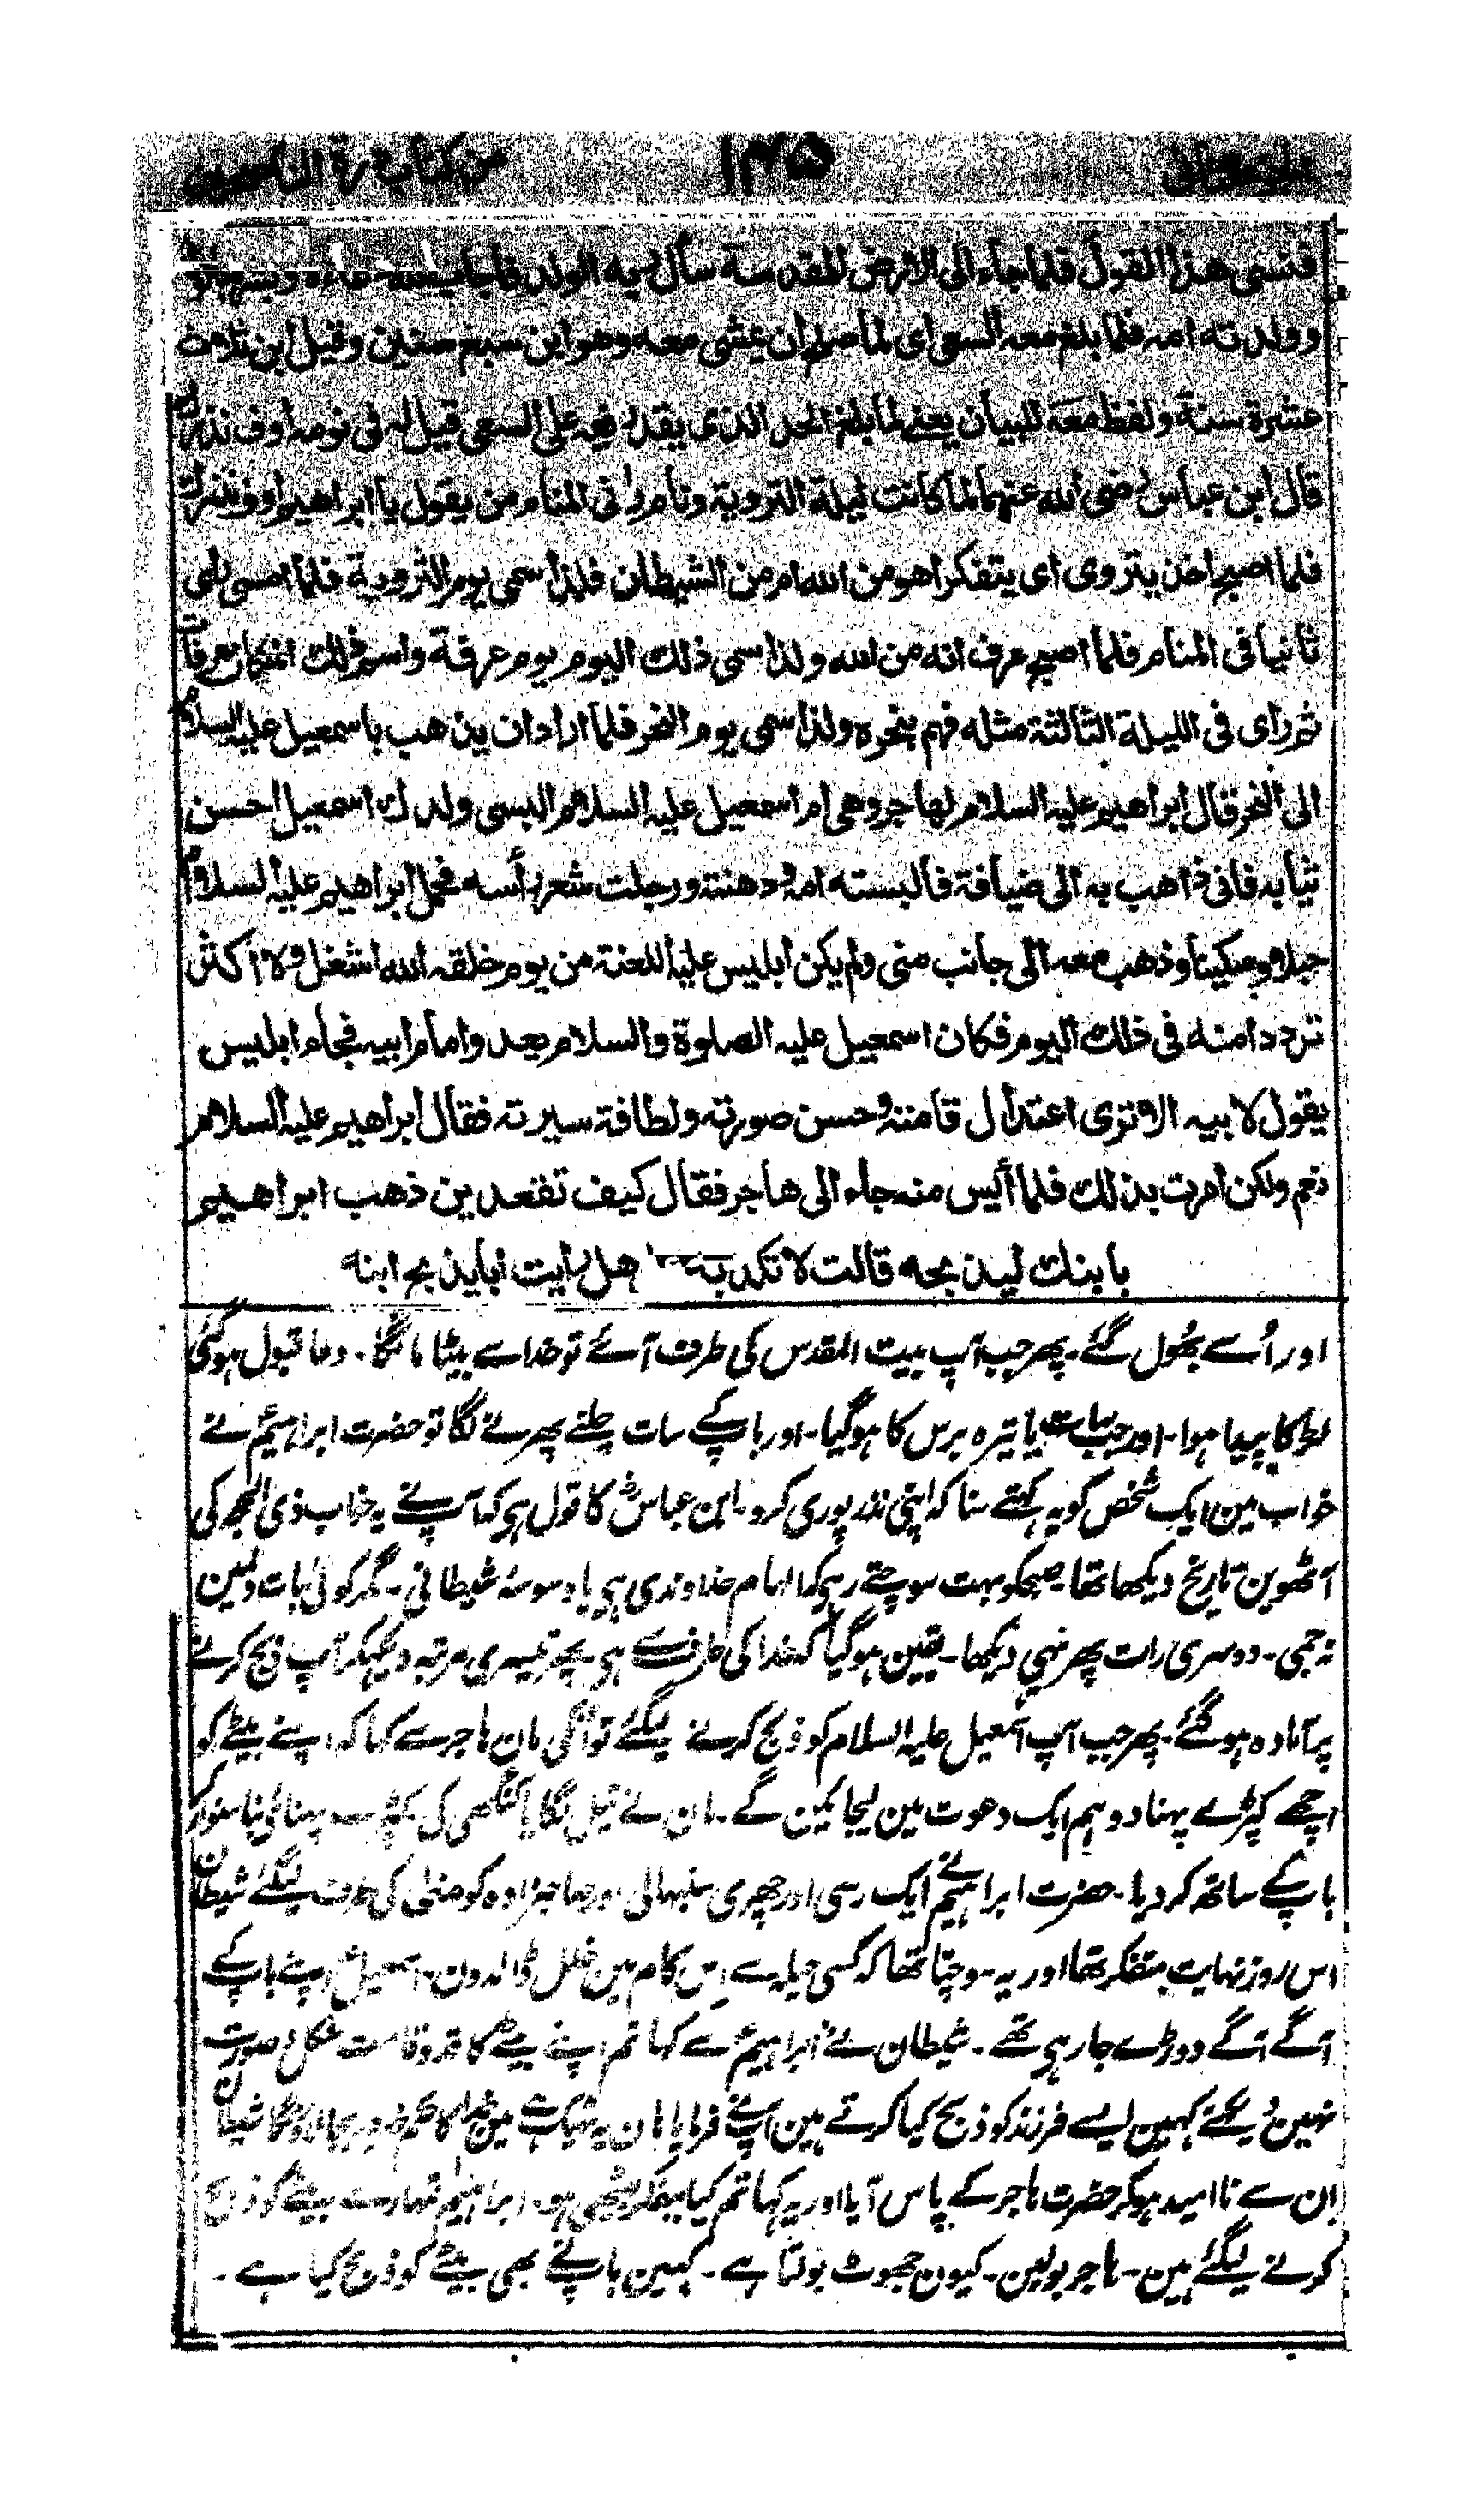 من كتاب قرة الناصحين ۱۴۵ جلد ثانی
فنسى هذا القول فلما جاء الى الارض المقدسة سأل ربه الولد فاجاب الله دعاءه وبشره
وولدته امه فلما بلغ معه السعى اى لما صلح ان يمشى معه وهو ابن سبع سنين وقيل ابن ثلاث
عشرة سنة ولفظ معه للبيان يعنى لما بلغ الحد الذى يقدر فيه على السعى قيل له فى نومه اوف نذرك
قال ابن عباس رضى الله عنهما لما كانت ليلة التروية ونام راى فى المنام من يقول يا ابراهيم اوف نذرك
فلما اصبح اخذ يتروى اى يتفكر اهو من الله ام من الشيطان فلذا سمى يوم التروية فلما امسى راى
ثانيا فى المنام فلما اصبح عرف انه من الله ولذا سمى ذلك اليوم يوم عرفة واسم ذلك المكان عرفات
ثم راى فى الليلة الثالثة مثله فهم بنحره ولذا سمى يوم النحر فلما اراد ان يذهب باسمعيل عليه السلام
الى النحر قال ابراهيم عليه السلام لهاجر وهى ام اسمعيل عليه السلام البسى ولدك اسمعيل احسن
ثيابه فانى ذاهب به الى ضيافة فالبسته امه ودهنته ورجلت شعر رأسه فحمل ابراهيم عليه السلام
حبلا وسكينا وذهب معه الى جانب منى ولم يكن ابليس عليه اللعنة من يوم خلقه الله اشغل ولا اكثر
ترددا منه فى ذلك اليوم فكان اسمعيل عليه الصلوة والسلام يعدو امام ابيه فجاء ابليس
يقول لابيه الا ترى اعتدال قامته وحسن صورته ولطافة سيرته فقال ابراهيم عليه السلام
نعم ولكن امرت بذلك فلما أيس منه جاء الى هاجر فقال كيف تقعدين ذهب ابراهيم
بابنك ليذبحه قالت لا تكذب هل رايت ابا يذبح ابنه
اور اُسے بھُول گئے۔ پھر جب آپ بیت المقدس کی طرف آئے تو خدا سے بیٹا مانگا۔ دعا قبول ہوگئی
لڑکا پیدا ہوا۔ اور جب سات یا تیرہ برس کا ہوگیا۔ اور باپ کے سات چلنے پھرنے لگا تو حضرت ابراہیمؑ نے
خواب مین ایک شخص کو یہ کہتے سنا کہ اپنی نذر پوری کرو۔ ابن عباسؓ کا قول ہی کہ آپنے یہ خاب ذی الحجہ کی
آٹھوین تاریخ دیکھا تھا۔ صبحکو بہت سوچتے رہی کہ الہام خداوندی ہی یا وسوسۂ شیطانی۔ مگر کوئی بات دلمین
نہ جمی۔ دوسری رات پھر یہی دیکھا۔ یقین ہوگیا کہ خدا کی طرف سے ہی۔ پھر تیسری مرتبہ دیکھکر آپ ذبح کرنے
پر آمادہ ہوگئے۔ پھر جب آپ اسمعیل علیہ السلام کو ذبح کرنے لیگئے تو انکی مان ہاجر سے کہا کہ اپنے بیٹے کو
اچھے کپڑے پہنا دو ہم ایک دعوت مین لیجائین گے۔ مان نے تیل لگایا کنگھی کی کپڑے پہنائے بنا سنوار کر
باپ کے ساتھ کر دیا۔ حضرت ابراہیمؑ نے ایک رسی اور چھری سنبھالی اور صاحبزادہ کو منٰی کی طرف لیگئے شیطان
اس روز نہایت متفکر تھا اور یہ سوچتا تھا کہ کسی حیلہ سے اس کام مین خلل ڈالدون۔ اسمعیلؑ اپنے باپ کے
آگے آگے دوڑے جا رہی تھے۔ شیطان نے ابراہیمؑ سے کہا تم اپنے بیٹے کا قد و قامت شکل و صورت
نہین دیکھتے کہین ایسے فرزند کو ذبح کیا کرتے ہین آپنے فرمایا ہان یہ ٹھیک ہے مین خدا کا حکم ضرور بجا لاؤنگا شیطان
ان سے ناامید ہوکر حضرت ہاجر کے پاس آیا اور یہ کہا تم کیا بیفکر بیٹھی ہو۔ ابراہیمؑ تمہارے بیٹے کو ذبح
کرنے لیگئے ہین۔ ہاجر بولین۔ کیون جھوٹ بولتا ہے۔ کہین باپ نے بھی بیٹے کو ذبح کیا ہے۔